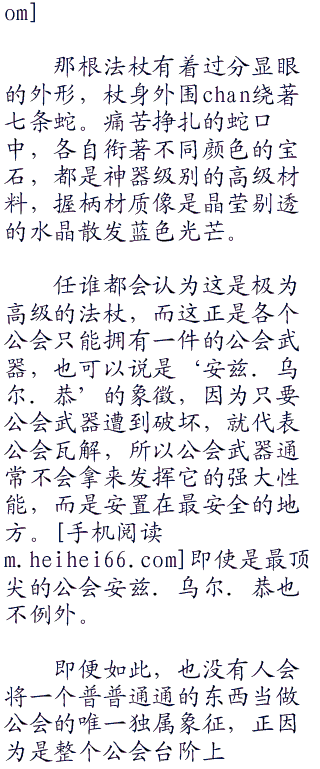 om]
那根法杖有着过分显眼
的外形，杖身外围chan绕著
七条蛇。痛苦挣扎的蛇口
中，各自衔著不同颜色的宝
石，都是神器级别的高级材
料，握柄材质像是晶莹剔透
的水晶散发蓝色光芒。
任谁都会认为这是极为
高级的法杖，而这正是各个
公会只能拥有一件的公会武
器，也可以说是‘安兹．乌
尔．恭’的象徵，因为只要
公会武器遭到破坏，就代表
公会瓦解，所以公会武器通
常不会拿来发挥它的强大性
能，而是安置在最安全的地
方。[手机阅读
m.heihei66.com]即使是最顶
尖的公会安兹．乌尔．恭也
不例外。
即便如此，也没有人会
将一个普普通通的东西当做
公会的唯一独属象征，正因
为是整个公会台阶上